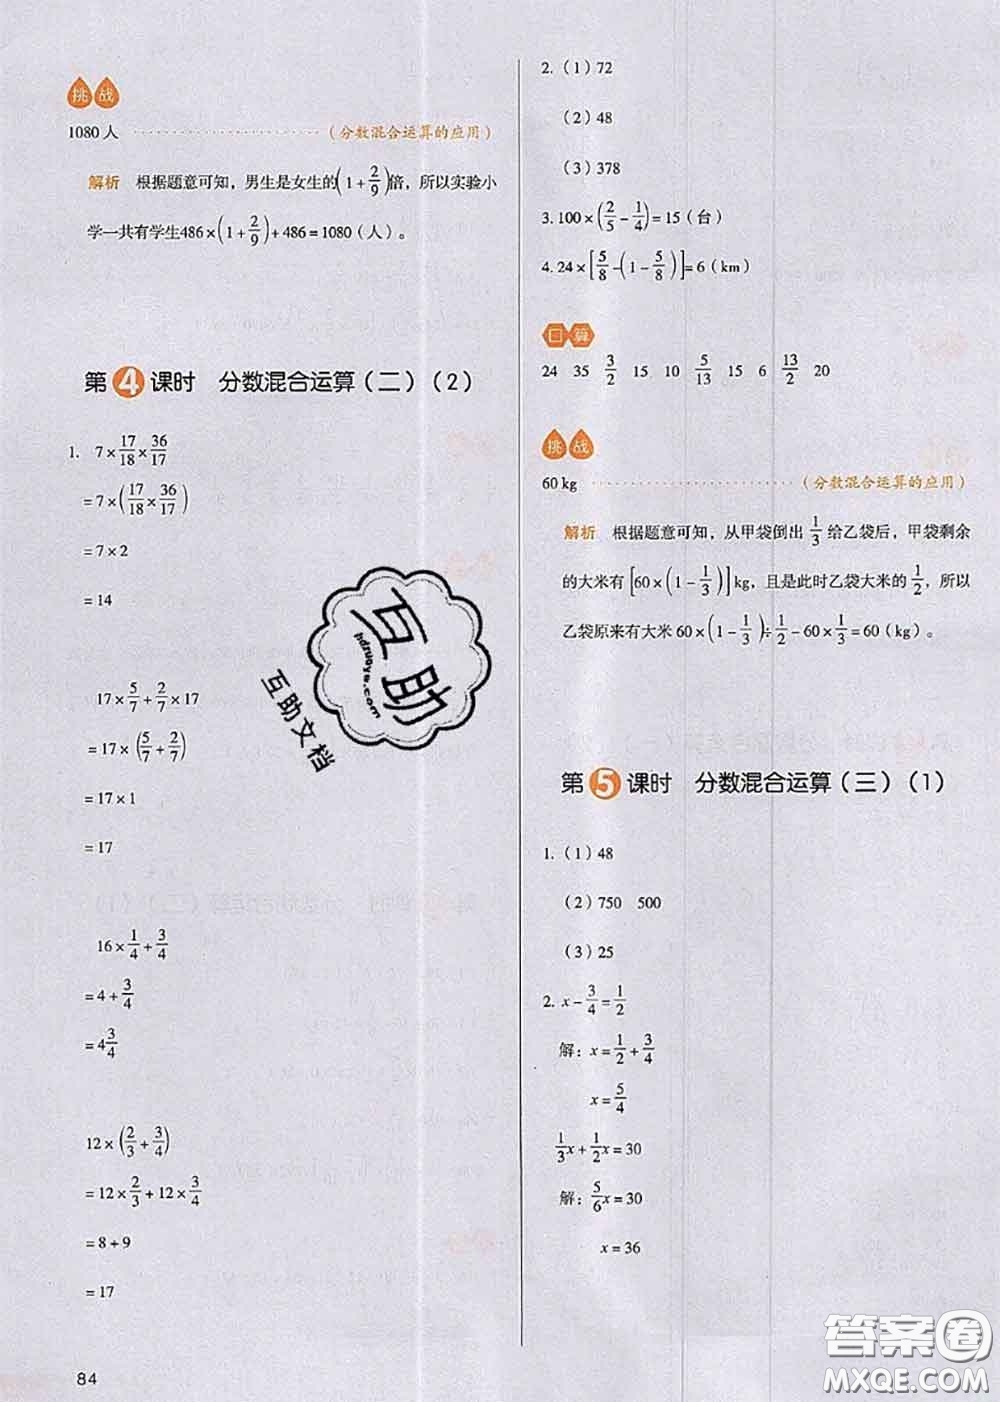 挑战
1080人 ························ (分数混合运算的应用)
解析 根据题意可知，男生是女生的(1+2/9)倍，所以实验小
学一共有学生486×(1+2/9)+486=1080(人)。
第4课时 分数混合运算(二)(2)
1. 7×17/18×36/17
=7×(17/18×36/17)
=7×2
=14
17×5/7+2/7×17
=17×(5/7+2/7)
=17×1
=17
16×1/4+3/4
=4+3/4
=4 3/4
12×(2/3+3/4)
=12×2/3+12×3/4
=8+9
=17
84
2. (1)72
(2)48
(3)378
3. 100×(2/5-1/4)=15(台)
4. 24×[5/8-(1-5/8)]=6(km)
口算
24 35 3/2 15 10 5/13 15 6 13/2 20
挑战
60 kg ························ (分数混合运算的应用)
解析 根据题意可知，从甲袋倒出1/3给乙袋后，甲袋剩余
的大米有[60×(1-1/3)]kg，且是此时乙袋大米的1/2，所以
乙袋原来有大米60×(1-1/3)÷1/2-60×1/3=60(kg)。
第5课时 分数混合运算(三)(1)
1. (1)48
(2)750 500
(3)25
2. x-3/4=1/2
解：x=1/2+3/4
x=5/4
1/3x+1/2x=30
解：5/6x=30
x=36
互助
hdzuoye.com
互助文档
答案圈
MXQE.COM